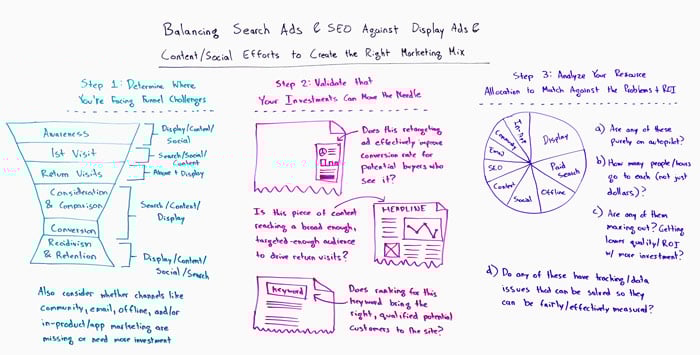 Balancing Search Ads & SEO Against Display Ads &
Content/Social Efforts to Create the Right Marketing Mix
Step 1: Determine Where
You're Facing Funnel Challenges
Awareness
1st Visit
Return Visits
Consideration
& Comparison
Conversion
Recidivism
& Retention
Display/Content/
Social
Search/Social/
Content
Above + Display
Search/Content/
Display
Display/Content/
Social/Search
Also consider whether channels like
community, email, offline, and/or
in-product/app marketing are
missing or need more investment
Step 2: Validate that
Your Investments Can Move the Needle
Does this retargeting
ad effectively improve
conversion rate for
potential buyers who
see it?
Is this piece of content
reaching a broad enough,
targeted-enough audience
to drive return visits?
HEADLINE
keyword
Does ranking for this
keyword bring the
right, qualified potential
customers to the site?
Step 3: Analyze Your Resource
Allocation to Match Against the Problems + ROI
Display
Paid
Search
Offline
Social
Content
SEO
Email
Community
a) Are any of these
purely on autopilot?
b) How many people/hours
go to each (not just
dollars)?
c) Are any of them
maxing out? Getting
lower quality/ROI
w/ more investment?
d) Do any of these have tracking/data
issues that can be solved so they
can be fairly/effectively measured?